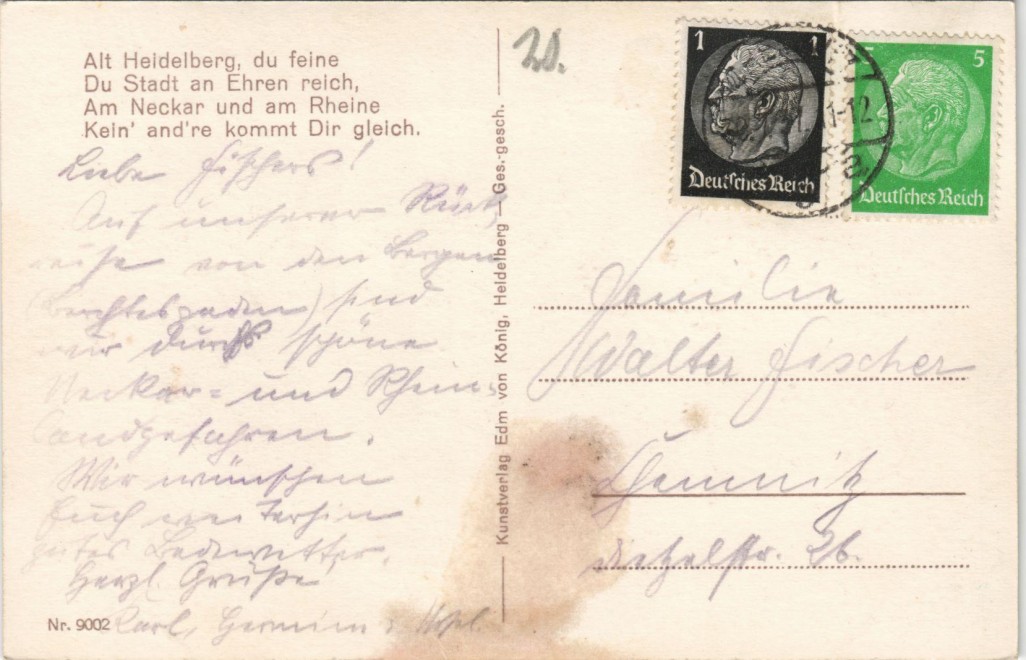 Alt Heidelberg, du feine
Du Stadt an Ehren reich,
Am Neckar und am Rheine
Kein' and're kommt Dir gleich.
Liebe Fischers!
Auf unserer Rück-
reise von den Bergen
(Berchtesgaden) sind
wir durchs schöne
Neckar- und Rhein-
land gefahren.
Wir wünschen
Euch weiterhin
gutes Badewetter.
Herzl. Grüße
Karl,
Nr. 9002
Kunstverlag Edm von König, Heidelberg — Ges.-gesch.
20.
1 1
Deutsches Reich
5 5
Deutsches Reich
Familie
Walter Fischer
Chemnitz
26.